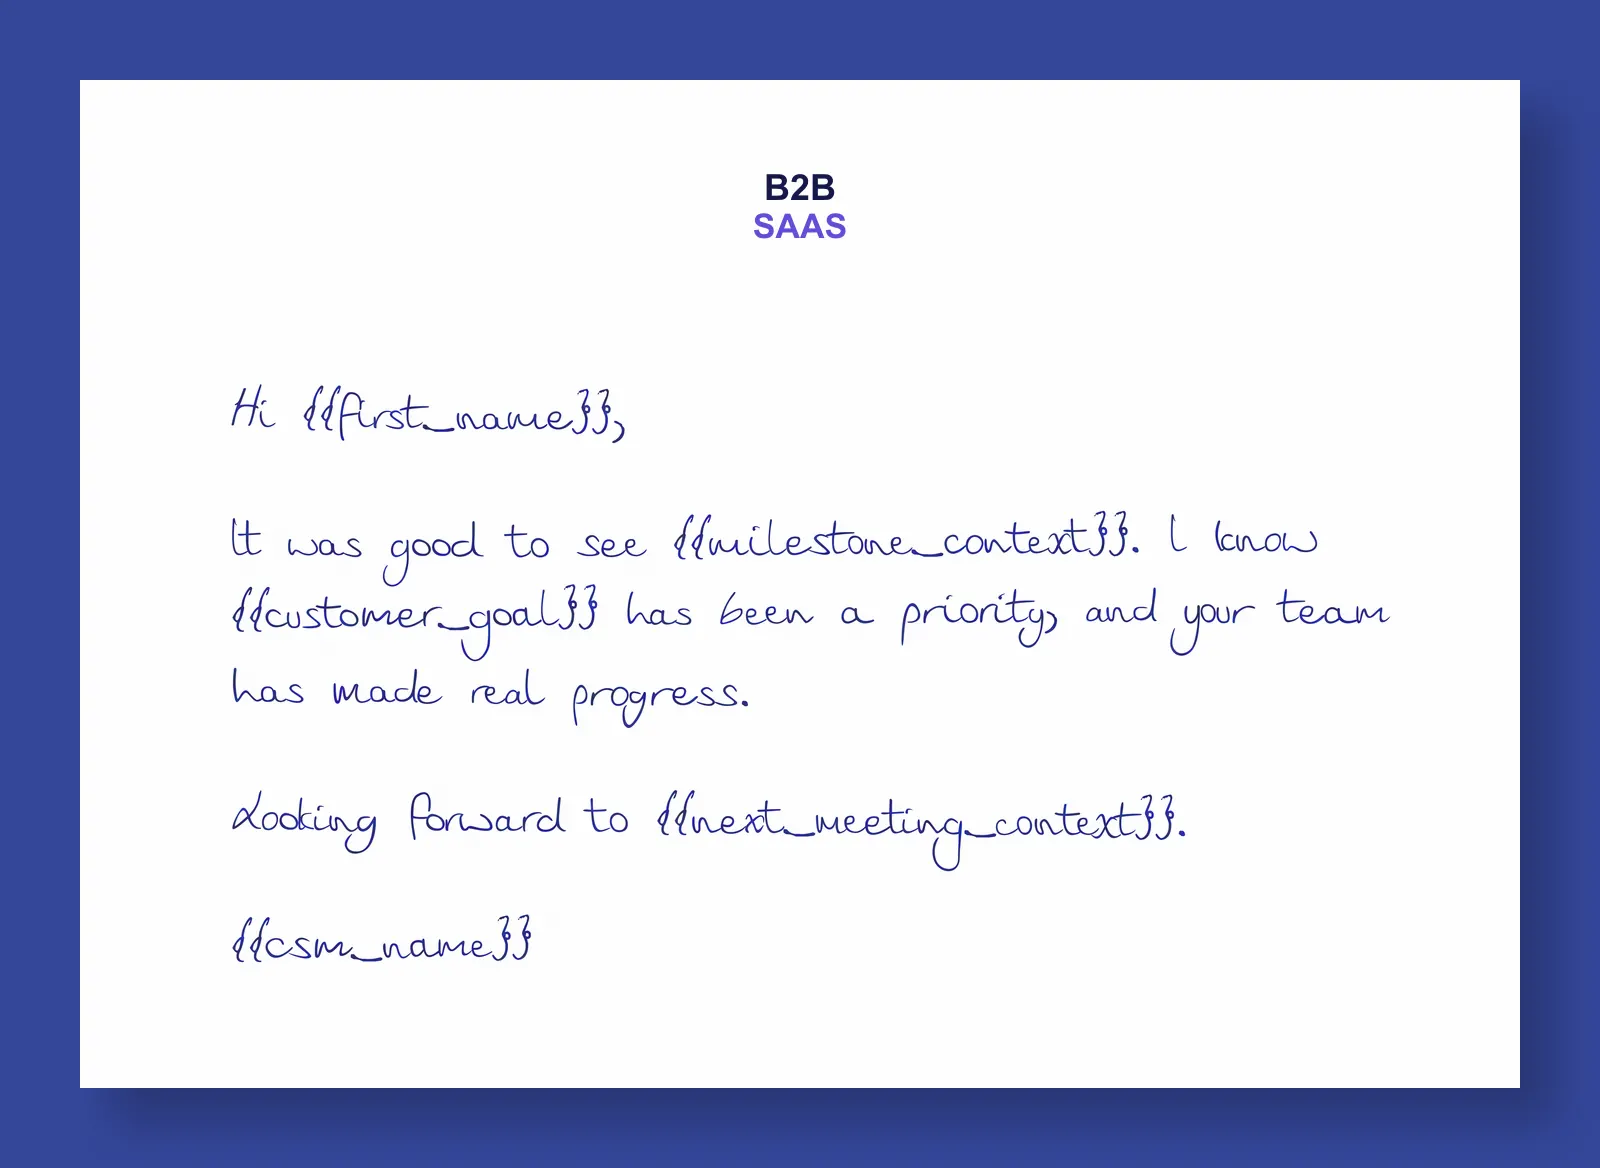 B2B
SAAS
Hi {{first_name}},
It was good to see {{milestone_context}}. I know
{{customer_goal}} has been a priority, and your team
has made real progress.
Looking forward to {{next_meeting_context}}.
{{csm_name}}